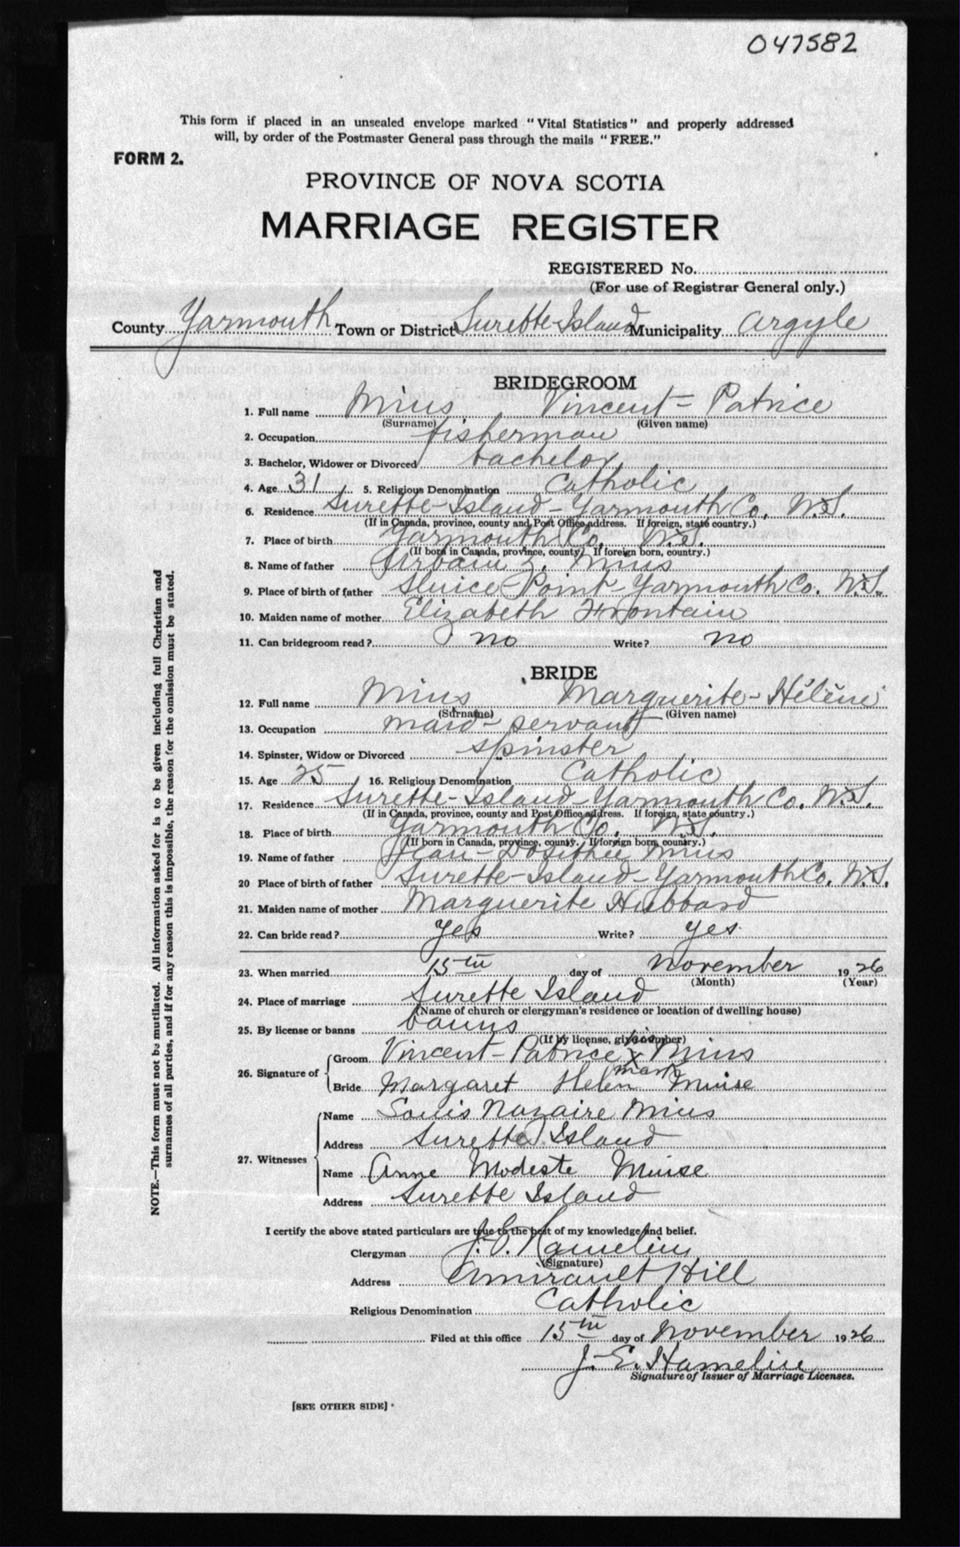 047582
This form if placed in an unsealed envelope marked "Vital Statistics" and properly addressed
will, by order of the Postmaster General pass through the mails "FREE."
FORM 2.
PROVINCE OF NOVA SCOTIA
MARRIAGE REGISTER
REGISTERED No.
(For use of Registrar General only.)
County Yarmouth Town or District Surette-Island Municipality Argyle
BRIDEGROOM
1. Full name Mius Vincent-Patrice
(Surname) (Given name)
2. Occupation fisherman
3. Bachelor, Widower or Divorced bachelor
4. Age 31 5. Religious Denomination Catholic
6. Residence Surette-Island-Yarmouth Co. N.S.
(If in Canada, province, county and Post Office address. If foreign, state country.)
7. Place of birth Yarmouth Co. N.S.
(If born in Canada, province, county. If foreign born, country.)
8. Name of father Urbain Z. Mius
9. Place of birth of father Sluice-Point-Yarmouth Co. N.S.
10. Maiden name of mother Elizabeth Frontain
11. Can bridegroom read? no Write? no
BRIDE
12. Full name Mius Marguerite-Hélène
(Surname) (Given name)
13. Occupation maid-servant
14. Spinster, Widow or Divorced spinster
15. Age 25 16. Religious Denomination Catholic
17. Residence Surette-Island-Yarmouth Co. N.S.
(If in Canada, province, county and Post Office address. If foreign, state country.)
18. Place of birth Yarmouth Co. N.S.
(If born in Canada, province, county. If foreign born, country.)
19. Name of father Jean-Dosithée Mius
20 Place of birth of father Surette-Island-Yarmouth Co. N.S.
21. Maiden name of mother Marguerite Hubbard
22. Can bride read? yes Write? yes
23. When married 15th day of November 1926
(Month) (Year)
24. Place of marriage Surette Island
(Name of church or clergyman's residence or location of dwelling house)
25. By license or banns banns
(If by license, give number)
26. Signature of Groom Vincent-Patrice his x mark Mius
Bride Margaret Helen Muise
27. Witnesses Name Louis Nazaire Mius
Address Surette Island
Name Anne Modeste Muise
Address Surette Island
I certify the above stated particulars are true to the best of my knowledge and belief.
Clergyman J. E. Hamelin
(Signature)
Address Amirault Hill
Religious Denomination Catholic
Filed at this office 15th day of November 1926
J. E. Hamelin
Signature of Issuer of Marriage Licenses.
[SEE OTHER SIDE]
NOTE.—This form must not be mutilated. All information asked for is to be given including full Christian and
surnames of all parties, and if for any reason this is impossible, the reason for the omission must be stated.